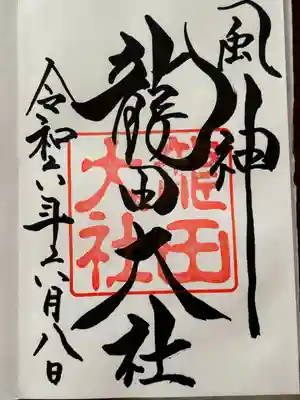 風神
龍田大社
令和六年六月八日
龍田
大社